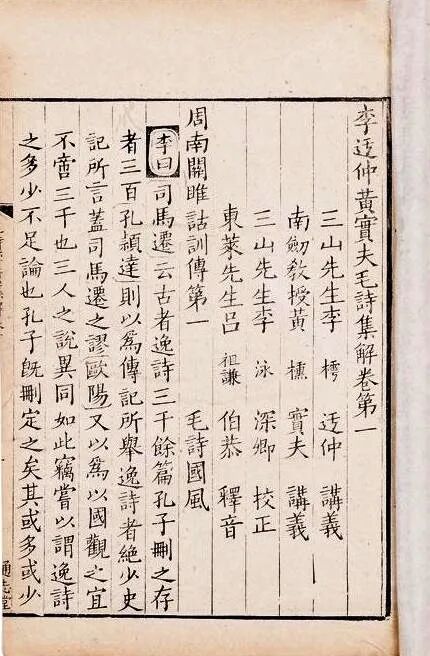 李迃仲黃實夫毛詩集解卷第一
三山先生李 樗 迃仲 講義
南劒教授黃 櫄 實夫 講義
三山先生李 泳 深卿 校正
東萊先生呂 祖謙 伯恭 釋音
周南關雎詁訓傳第一 毛詩國風
李曰司馬遷云古者逸詩三千餘篇孔子刪之存
者三百孔頴達則以為傳記所舉逸詩者絶少史
記所言蓋司馬遷之謬歐陽又以為以國觀之宜
不啻三千也三人之說異同如此竊嘗以謂逸詩
之多少不足論也孔子旣刪定之矣其或多或少
通志堂